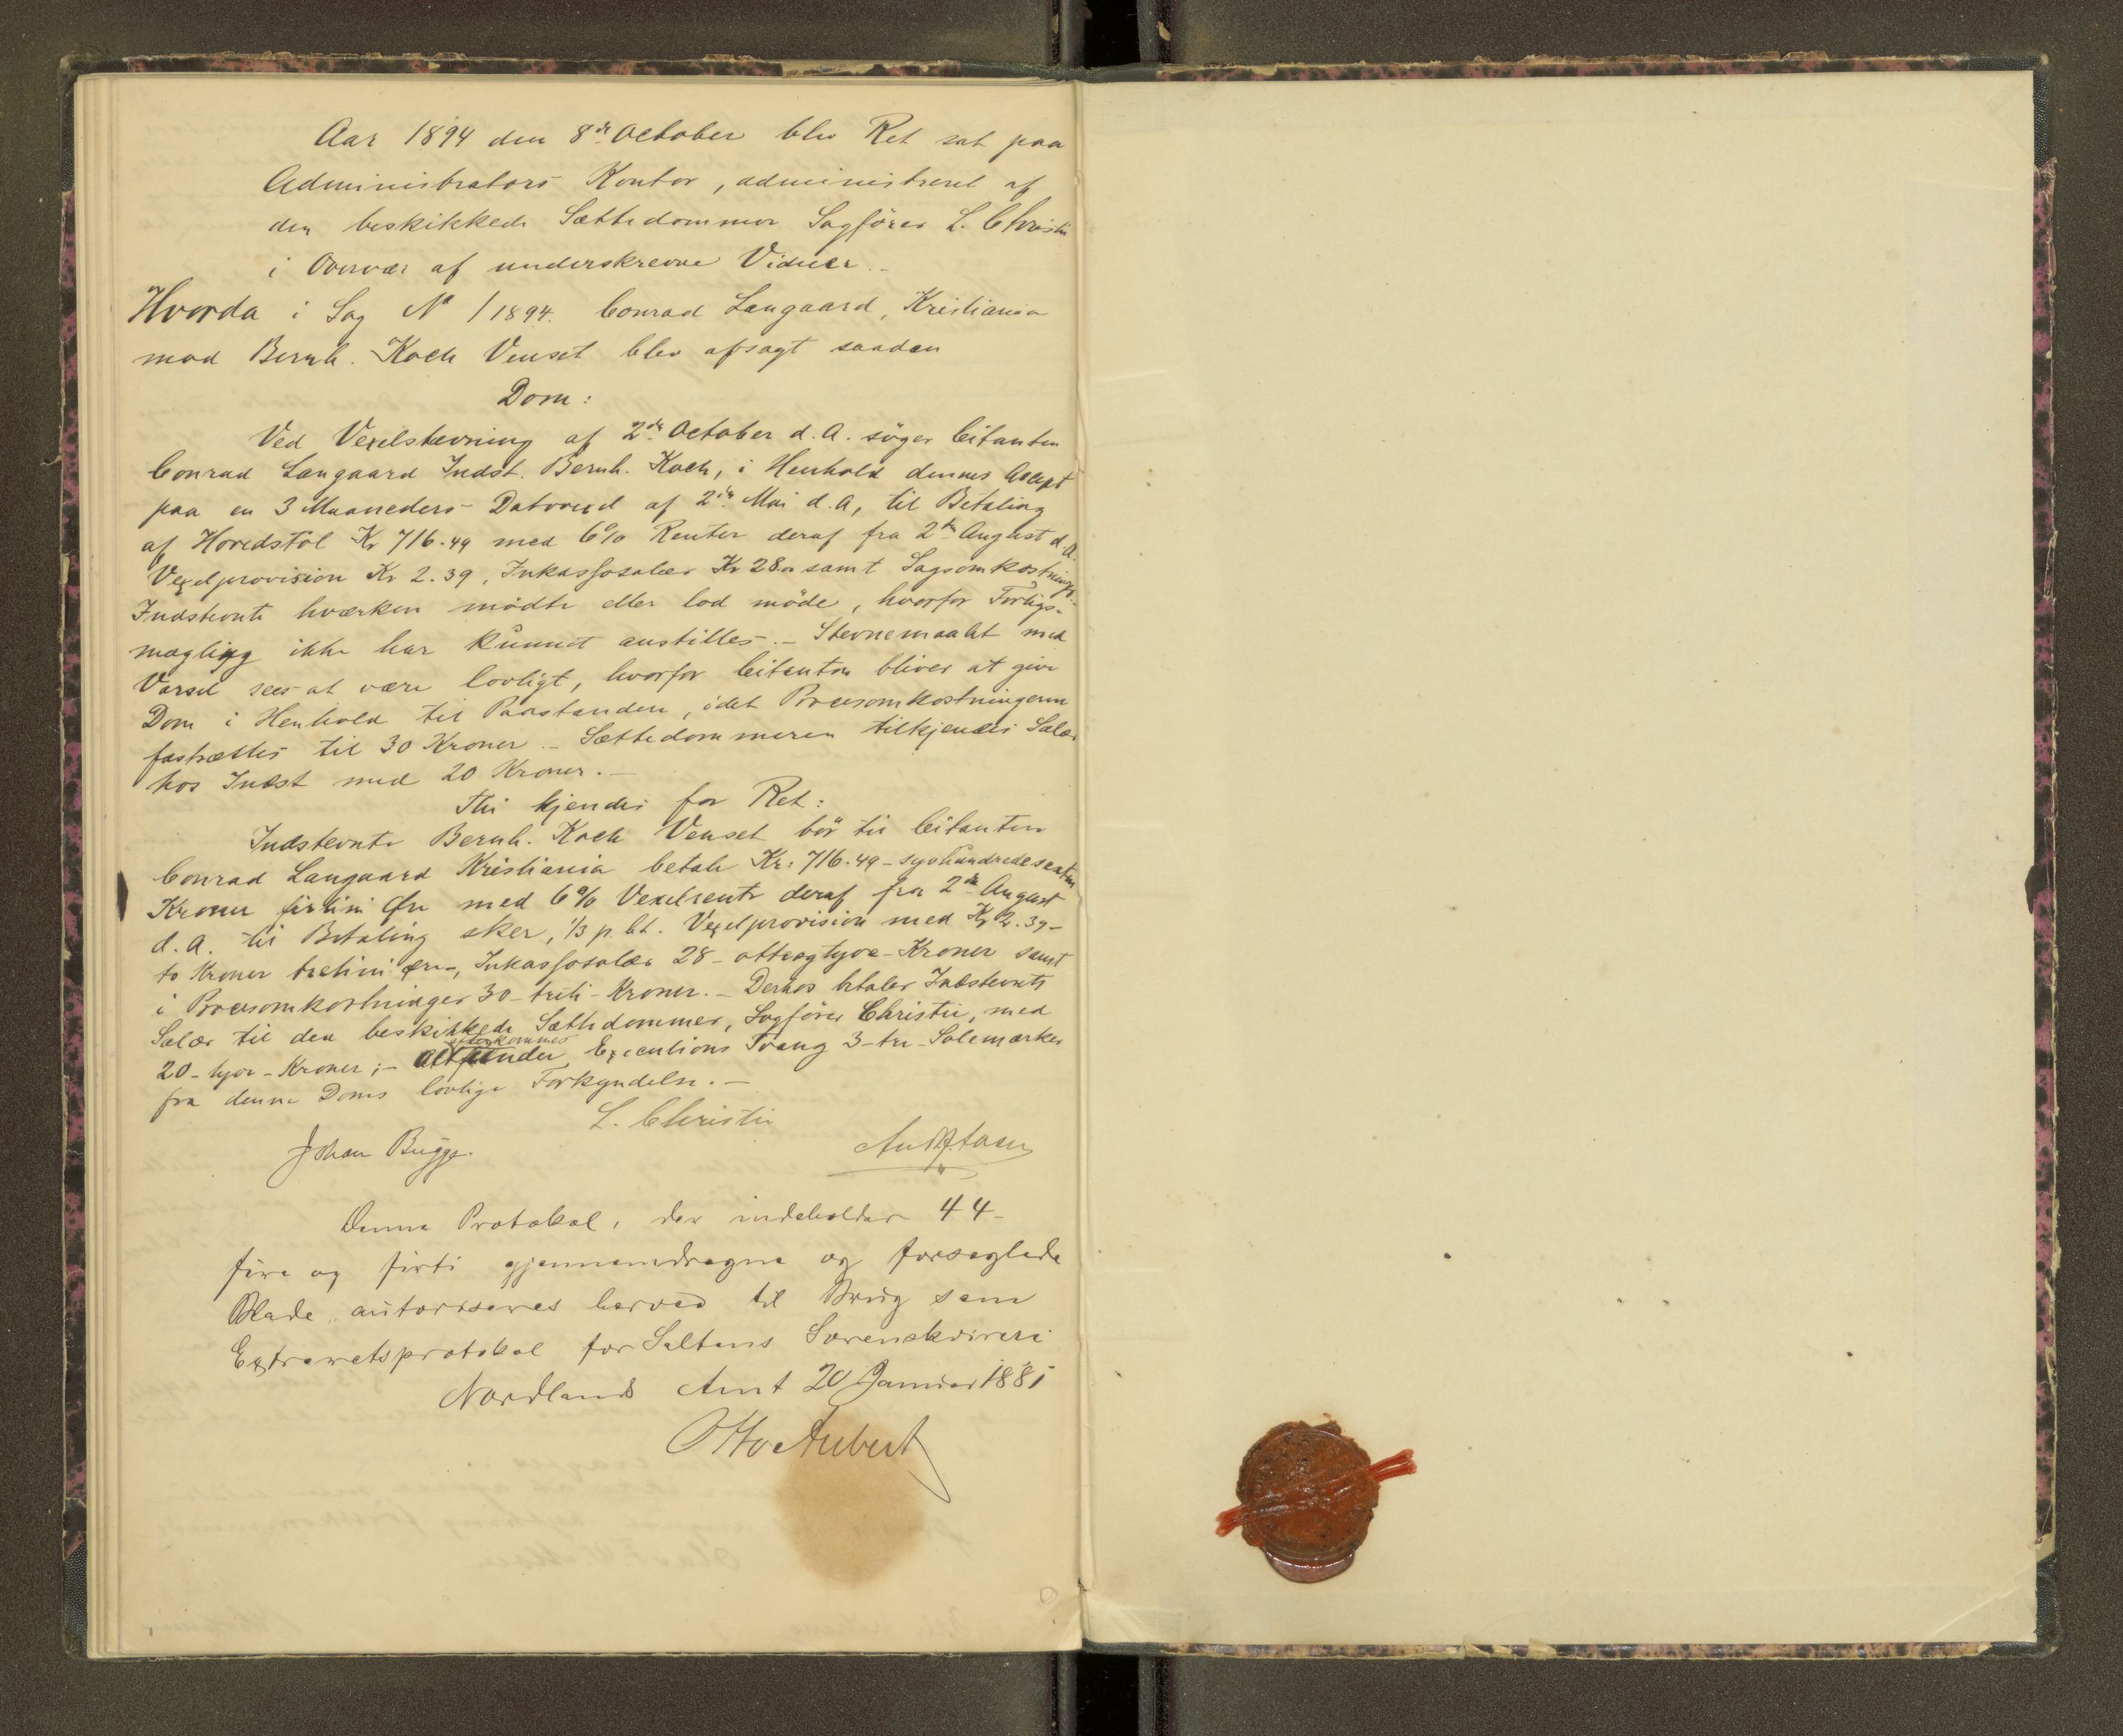 Aar 1894 den 8de October blev Ret sat paa
Administrators Kontor, administreret af
den beskikkede Sættedommer Sagfører L. Christie
i Overvær af underskrevne Vidner.-
Hvorda i Sag No 1/1894. Conrad Langaard, Kristiania
mod Bernh. Koch Venset blev afsagt saadan
Dom:
Ved Vexelstevning af 2den October d. A. søger Citanten
Conrad Langaard Indst. Bernh. Koch, i Henhold dennes Accept
paa en 3 Maaneders Datovexel af 2den Mai d. A, til Betaling
af Hovedstol Kr 716.49 med 6% Renter deraf fra 2den August d. A.
Vexelprovision Kr 2.39, Inkassosalær Kr 28.00 samt Sagsomkostninger.
Indstevnte hværken mødte eller lod møde, hvorfor Forligs-
mægling ikke har kunnet anstilles.- Stevnemaalet med
Varsel sees at være lovligt, hvorfor Citanten bliver at give
Dom i Henhold til Paastanden, idet Procesomkostningerne
fastsættes til 30 Kroner.- Sættedommeren tilkjendes Salær
hos Indst med 20 Kroner.-
Thi kjendes for Ret:
Indstevnte Bernh. Koch Venset bør til Citanten
Conrad Langaard Kristiania betale Kr: 716.49 - syvhundredesexten
Kroner firtini Øre med 6% Vexelrente deraf fra 2den August
d. A. til Betaling sker, 1/3 p. Ct. Vexelprovision med Kr 2.39-
to Kroner tretini øre-, Inkassosalær 28 - otteogtyve - Kroner samt
i Procesomkostninger 30 - treti - Kroner.- Derhos betaler Indstevnte
Salær til den beskikkede Sættedommer, Sagfører Christie, med
20 - tyve - Kroner;- Alt efterkommes under Executions Tvang 3 - tre - Solemærker
fra denne Doms lovlige Forkyndelse.-
L. Christie
Johan Bugge.
Denne Protokol, der indeholder 44-
fire og firti gjennemdragne og forseglede
Blade, autoriseres herved til Brug som
Extraretsprotokol for Saltens Sorenskriveri
Nordlands Amt 20 Januar 1881
Otto Aubert